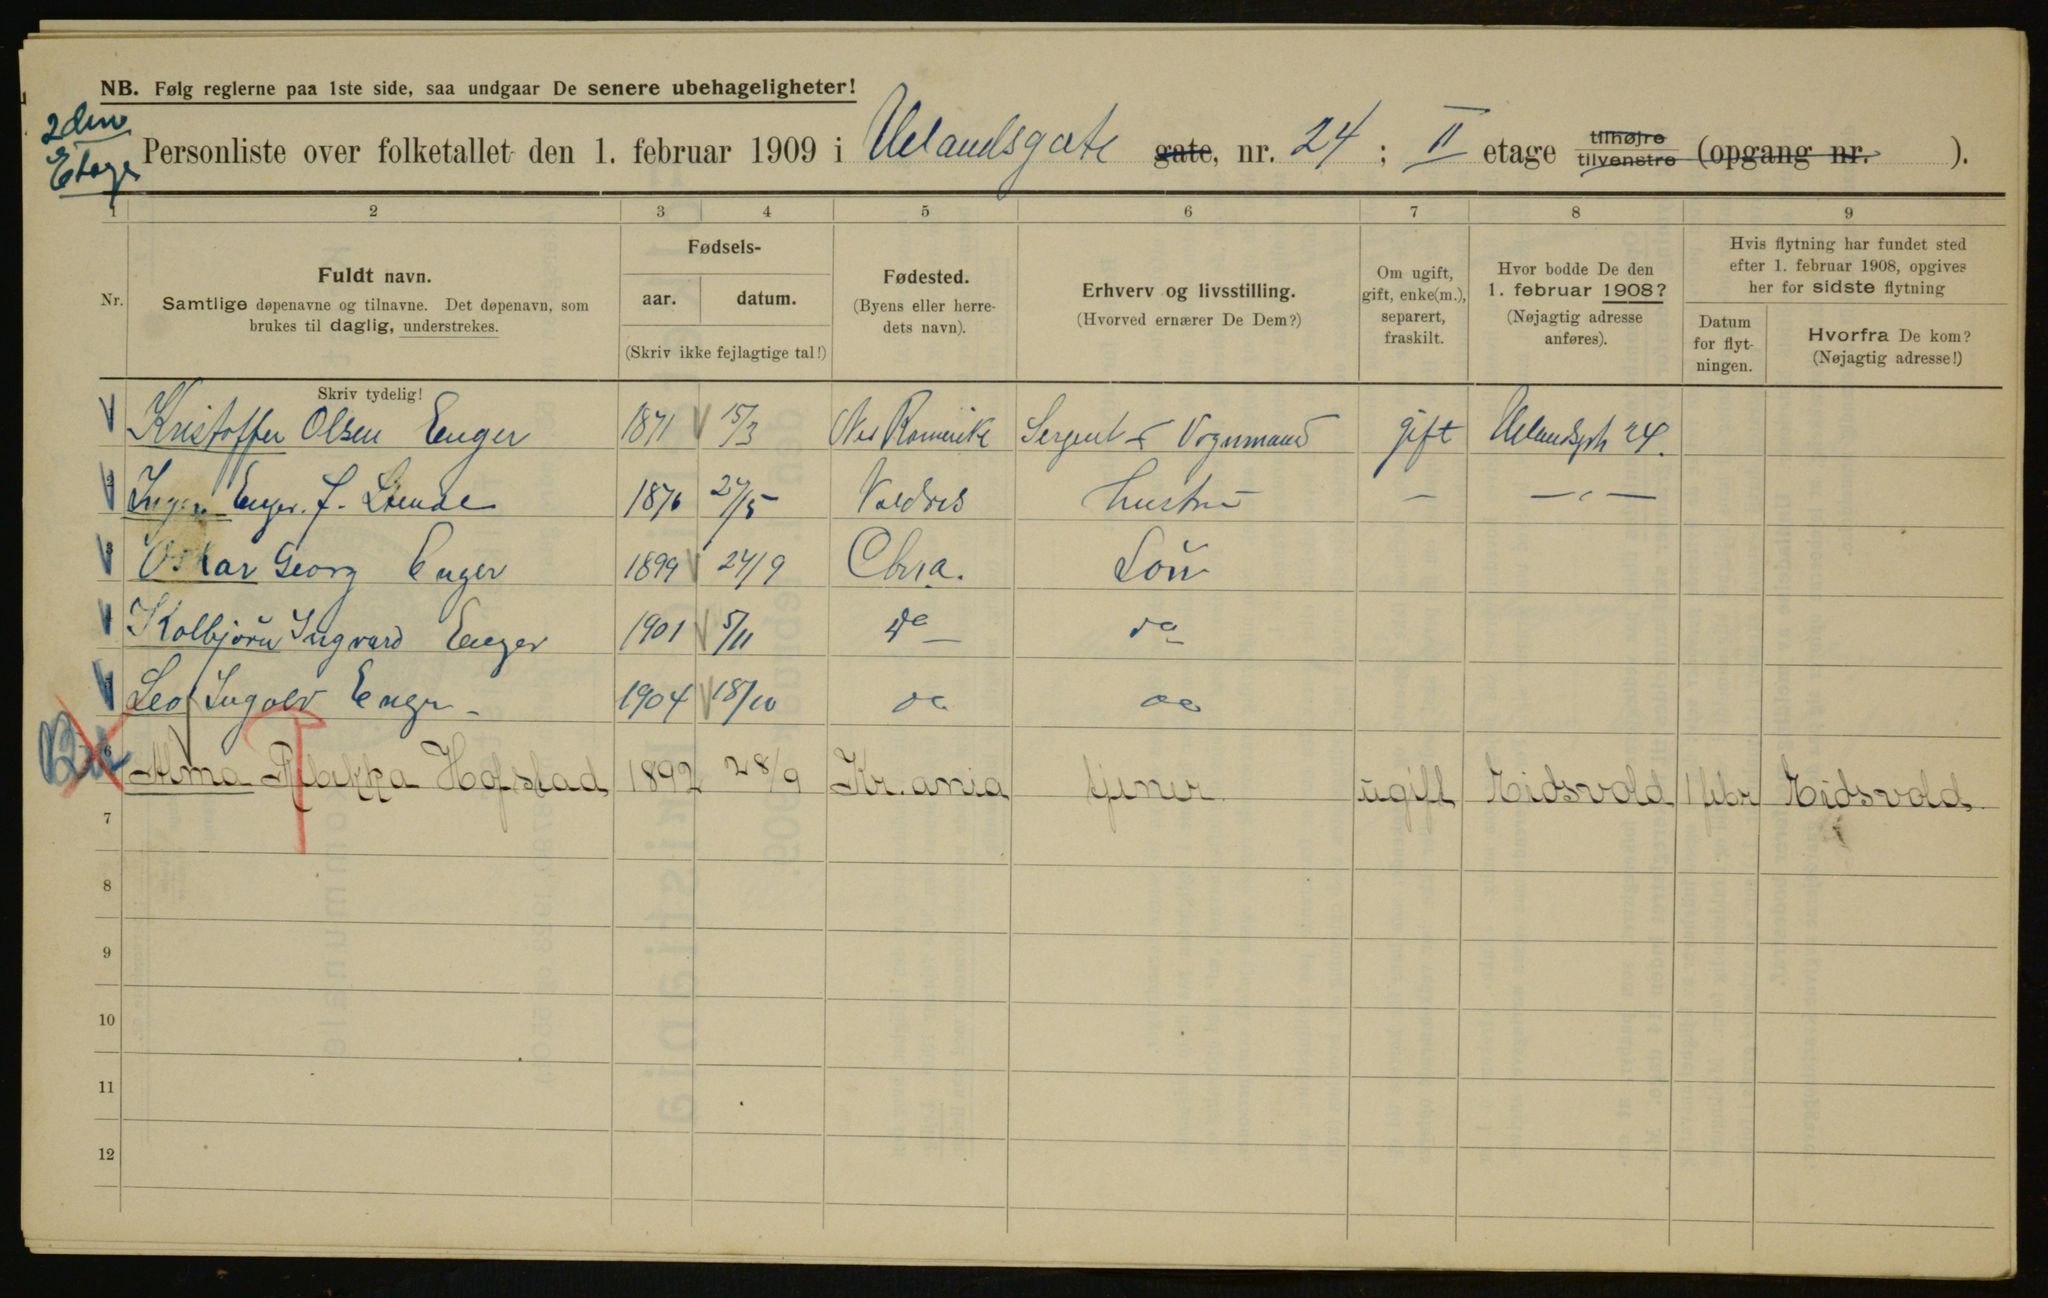 NB. Følg reglerne paa 1ste side, saa undgaar De senere ubehageligheter!
2den
Etage
Personliste over folketallet den 1. februar 1909 i Uelandsgate gate, nr. 24 ; II etage tilhøjre tilvenstre (opgang nr. ).
1 2 3 4 5 6 7 8 9
Nr.
Fuldt navn.
Samtlige døpenavne og tilnavne. Det døpenavn, som
brukes til daglig, understrekes.
Fødsels-
aar. datum.
(Skriv ikke fejlagtige tal!)
Fødested.
(Byens eller herre-
dets navn).
Erhverv og livsstilling.
(Hvorved ernærer De Dem?)
Om ugift,
gift, enke(m.),
separert,
fraskilt.
Hvor bodde De den
1. februar 1908?
(Nøjagtig adresse
anføres).
Hvis flytning har fundet sted
efter 1. februar 1908, opgives
her for sidste flytning
Datum
for flyt-
ningen.
Hvorfra De kom?
(Nøjagtig adresse!)
Skriv tydelig!
Kristoffer Olsen Enger 1871 15/3 Nes Romerike Sergent Vognmand gift Uelandsgt 24.
Enger f. 1876 27/5 Valdres hustru — —"—
3 Oskar Georg Enger 1899 24/9 Chria. Sön
Kolbjörn Ingvard Enger 1901 5/11 do do
Leo Ingolv Enger 1904 18/10 do do
6 Alma Rebekka Hofstad 1892 28/9 Kr.ania tjener ugift Eidsvold 1 febr Eidsvold
7
8
9
10
11
12